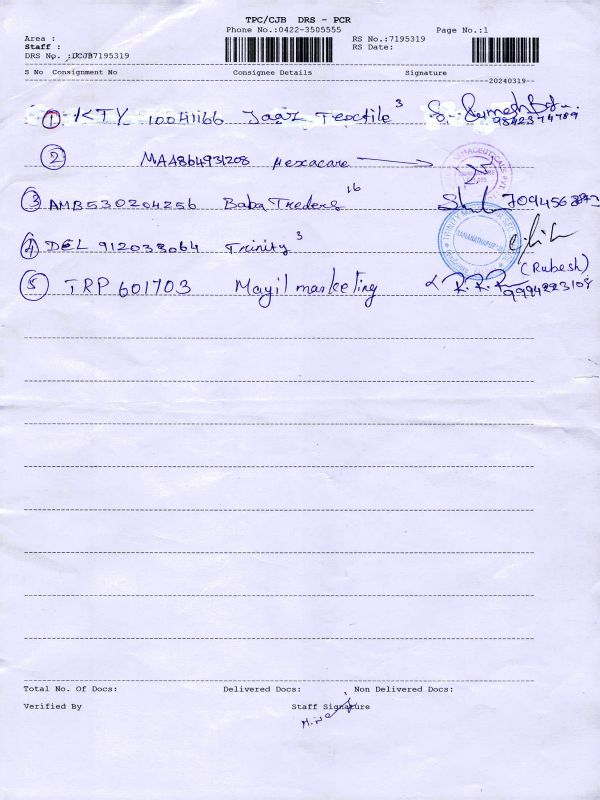 TPC/CJB DRS - PCR
Phone No.:0422-3505555 Page No.:1
Area : RS No.:7195319
Staff : RS Date:
DRS No. :DCJB7195319
S No Consignment No Consignee Details Signature
20240319
1 KTY 10041166 Jaaz Teoctile 3
2 MAA864931208 Mexacare
3 AMB530204256 Baba Treders 16
4 DEL 912033064 Trinity 3
(Rubesh)
5 TRP 601703 Mayil marketing
9994223108
Total No. Of Docs: Delivered Docs: Non Delivered Docs:
Verified By Staff Signature